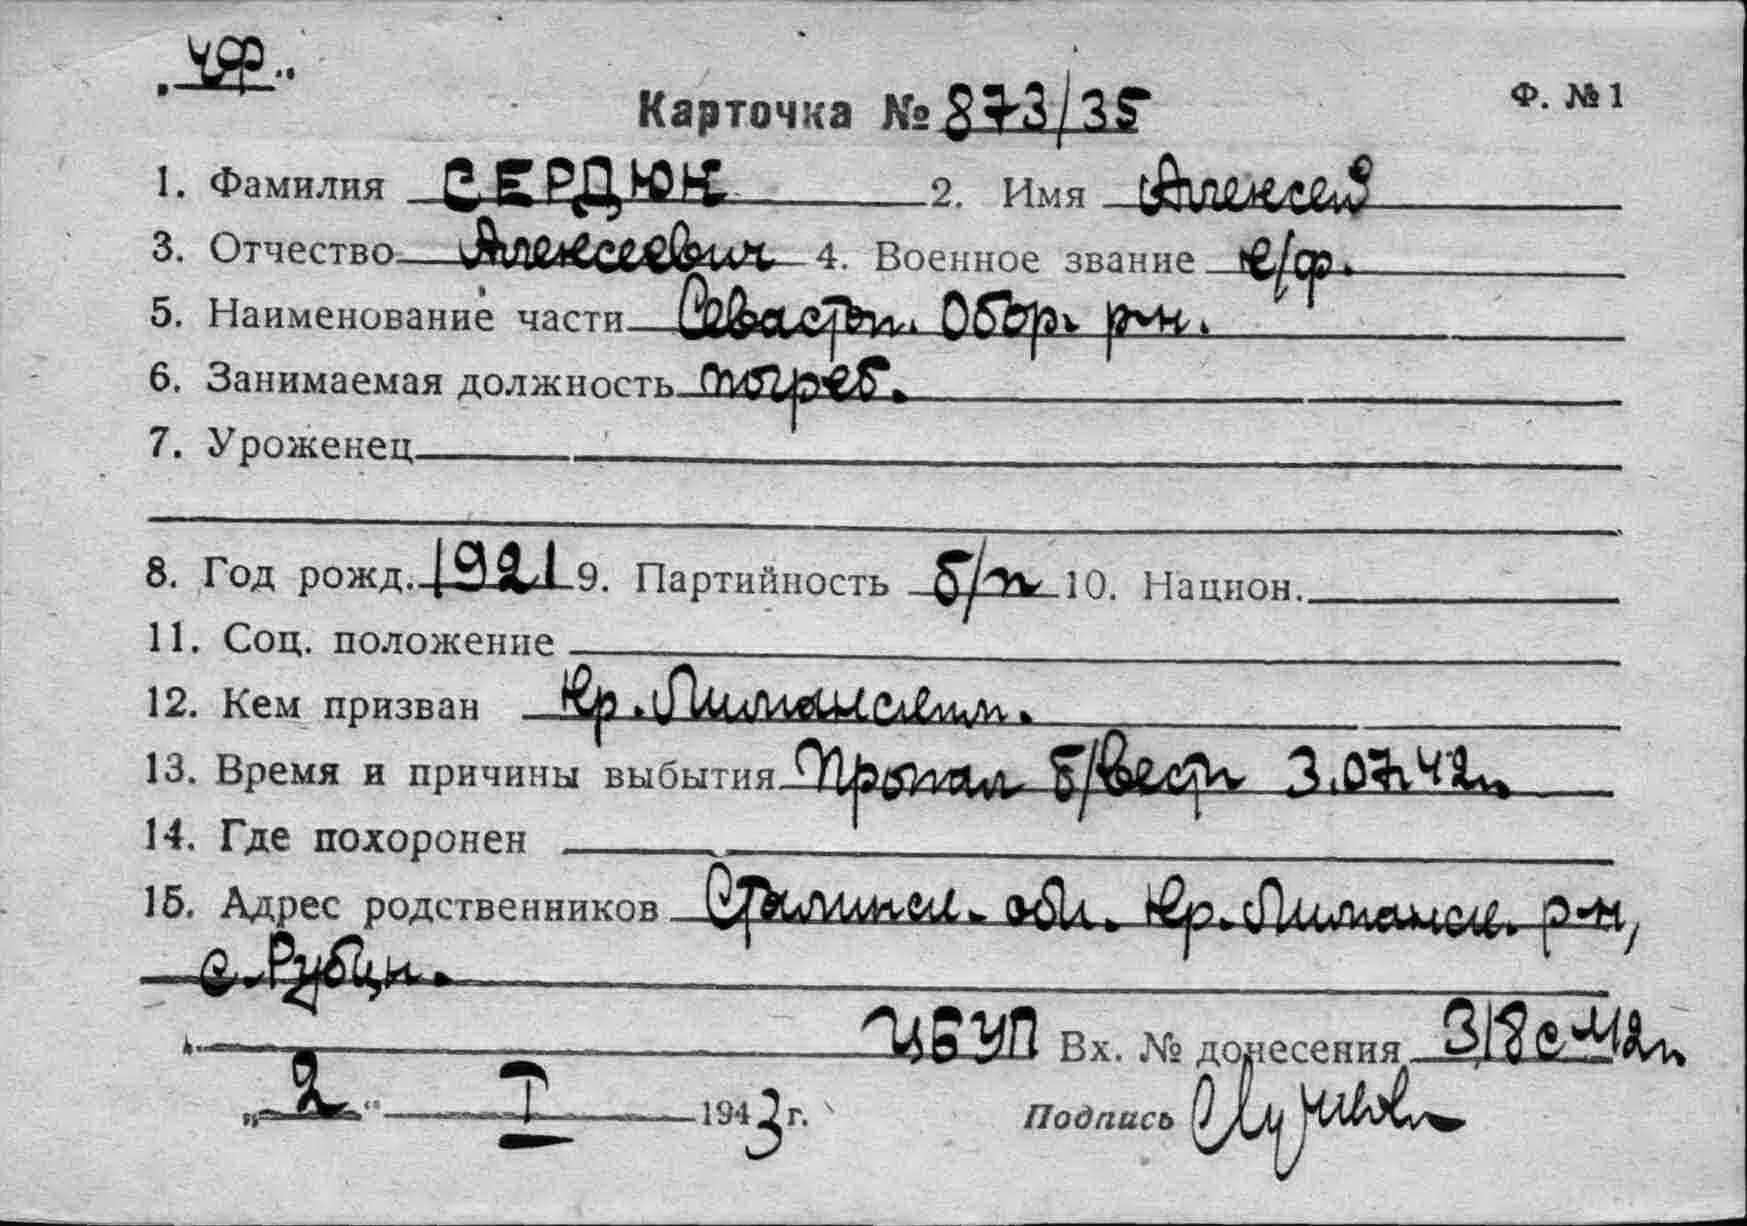 „ЧФ"
Ф. № 1
Карточка № 873/35
1. Фамилия СЕРДЮК 2. Имя Алексей
3. Отчество Алексеевич 4. Военное звание к/ф.
5. Наименование части Севастоп. Обор. р-н.
6. Занимаемая должность погреб.
7. Уроженец
8. Год рожд. 1921 9. Партийность б/п 10. Национ.
11. Соц. положение
12. Кем призван Кр. Лиманским.
13. Время и причины выбытия Пропал б/вести 3.07.42г.
14. Где похоронен
15. Адрес родственников Сталинск. обл. Кр. Лиманск. р-н,
с. Рубцн.
ЦБУП Вх. № донесения 318с 42г.
„2" I 1943 г. Подпись